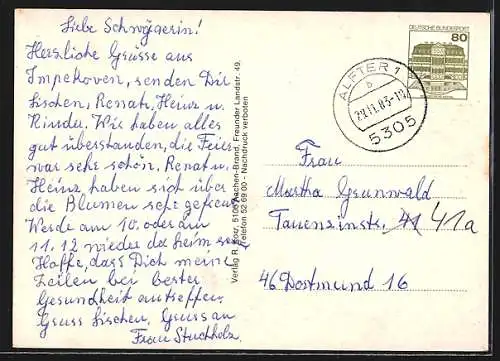 Liebe Schwägerin!
Herzliche Grüsse aus
Impekoven, senden Dir
Lieschen, Renat. Heinz u.
Kinder. Wir haben alles
gut überstanden, die Feier
war sehr schön, Renat u.
Heinz, haben sich über
die Blumen sehr gefreut
Werde am 10. oder am
11.12 wieder da heim sein
Hoffe, dass Dich meine
Zeilen bei bester
Gesundheit antreffen,
Gruss Lischen, Gruss an
Frau Stuchholz.
Verlag R. 5100 Aachen-Brand, Freunder Landstr. 49,
Telefon 52 69 00 - Nachdruck verboten
DEUTSCHE BUNDESPOST
80
ALFTER 1
b
5305
Frau
Martha Grunwald
Tauenzinstr. 41 41a
46 Dortmund 16